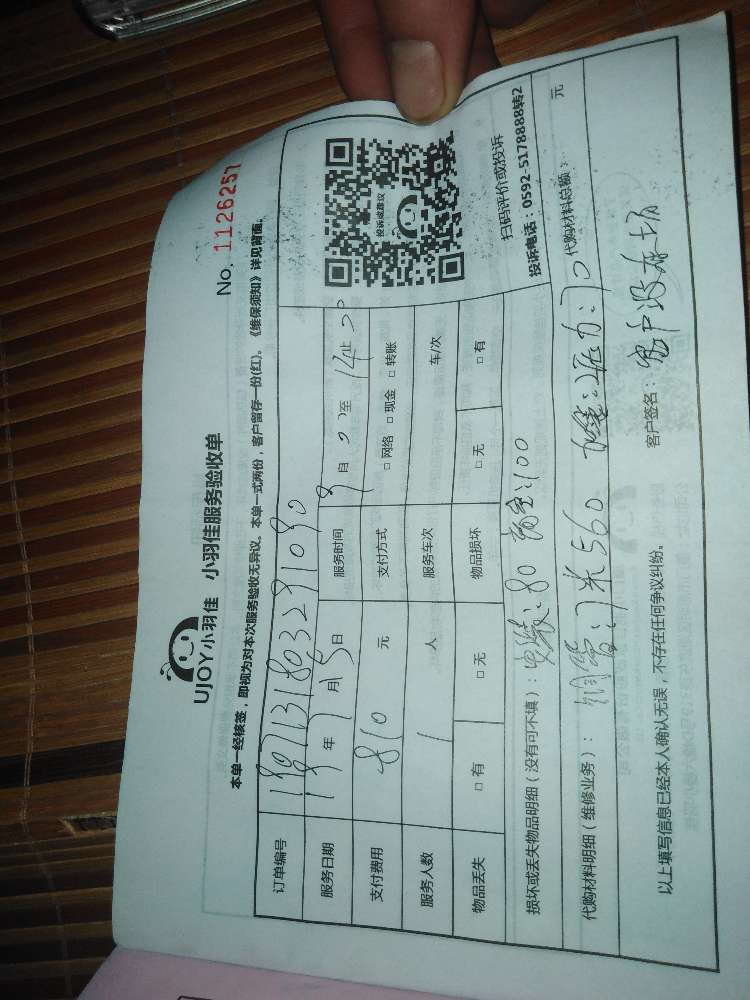 UJOY小羽佳 小羽佳服务验收单
No. 1126257
本单一经核签，即视为对本次服务验收无异议。本单一式两份，客户留存一份(红)。《维保须知》详见背面。
订单编号
服务日期 19年 7月5日 服务时间 自 至 14 止
支付费用 810 元 支付方式 □ 网络 □ 现金 □ 转账
服务人数 1 人 服务车次 车/次
物品丢失 □ 有 □ 无 物品损坏 □ 无 □ 有
投诉或建议
扫码评价或投诉
投诉电话：0592-5178888转2
损坏或丢失物品明细（没有可不填）： 80 100
代购材料明细（维修业务）： 铜管：7米560 70 代购材料总额： 元
以上填写信息已经本人确认无误，不存在任何争议纠纷。 客户签名： 客户没在场